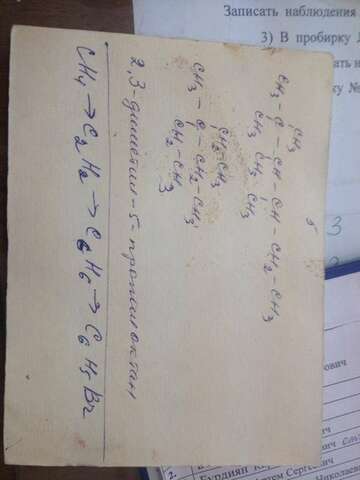 Записать наблюдения
3) В пробирку
ку №
5
CH3
CH3 - C - CH - CH - CH2 - CH3
CH3 CH3 CH3
CH2 CH3
CH3 - C - CH2 - CH3
CH2 - CH3
2,3-диметил-5-пропилоктан
CH4 → C2H2 → C6H6 → C6H5Br
3
ович
ович
2.
Бурдиян
Сергеевич
Николаевич